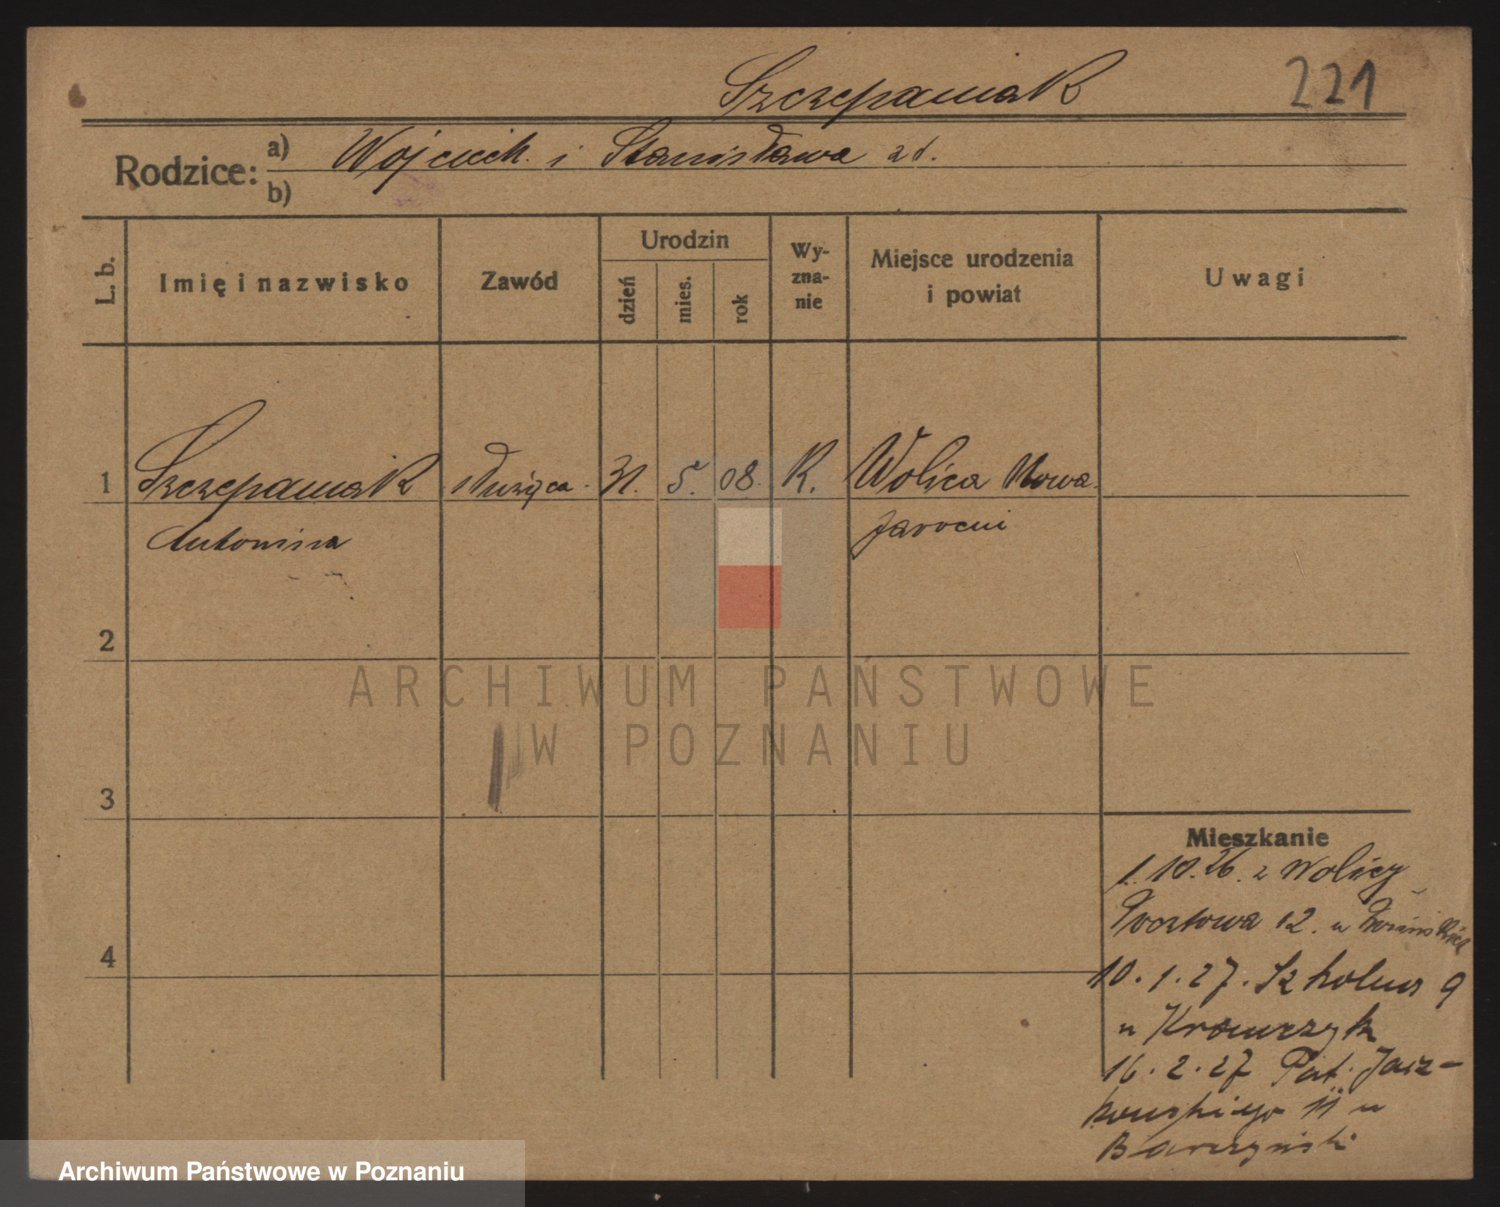 Szczepaniak 221
Rodzice: a) Wojciech i Stanisława
b)
L. b.
Imię i nazwisko
Zawód
Urodzin
dzień
mies.
rok
Wy-
zna-
nie
Miejsce urodzenia
i powiat
Uwagi
1 Szczepaniak służąca 31. 5. 08. K. Wolica Nowa
Antonina Jarocin
2
3
4
ARCHIWUM PAŃSTWOWE
W POZNANIU
Mieszkanie
1. 10. 26. z Wolicy
Pocztowa 12. u
10. 1. 27. Szkolna 9
u Krawczyk
16. 2. 27 Pat. Jacz-
kowskiego 11 u
Barczyński
Archiwum Państwowe w Poznaniu